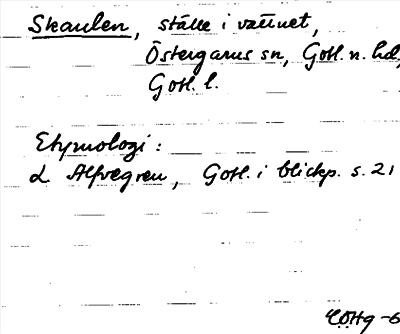 Skaulen, ställe i vattnet,
Östergarns sn, Gotl. n. hd,
Gotl. l.
Etymologi:
L Alfvegren, Gotl. i blickp. s. 21